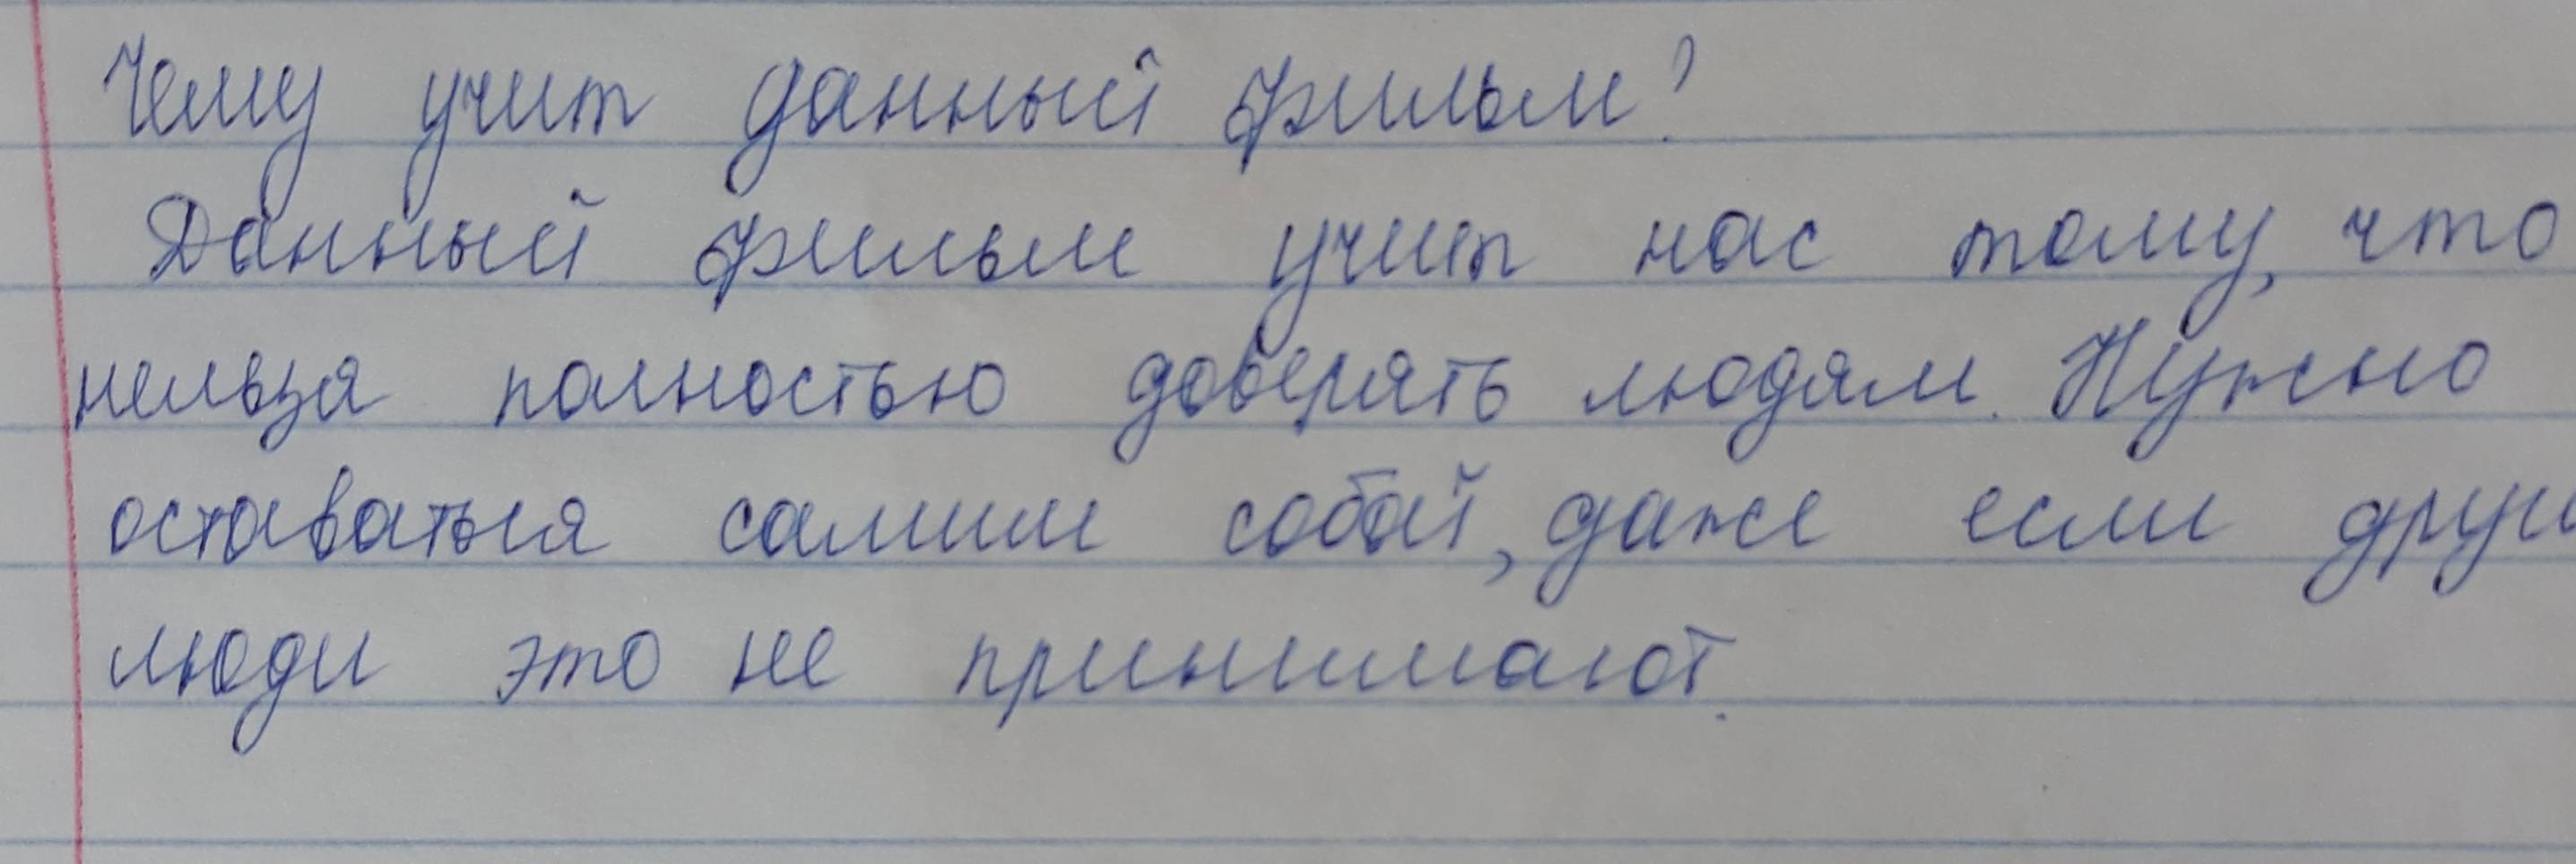 Чему учит данный фильм?
Данный фильм учит нас тому, что
нельзя полностью доверять людям. Нужно
оставаться самим собой, даже если
люди это не принимают.